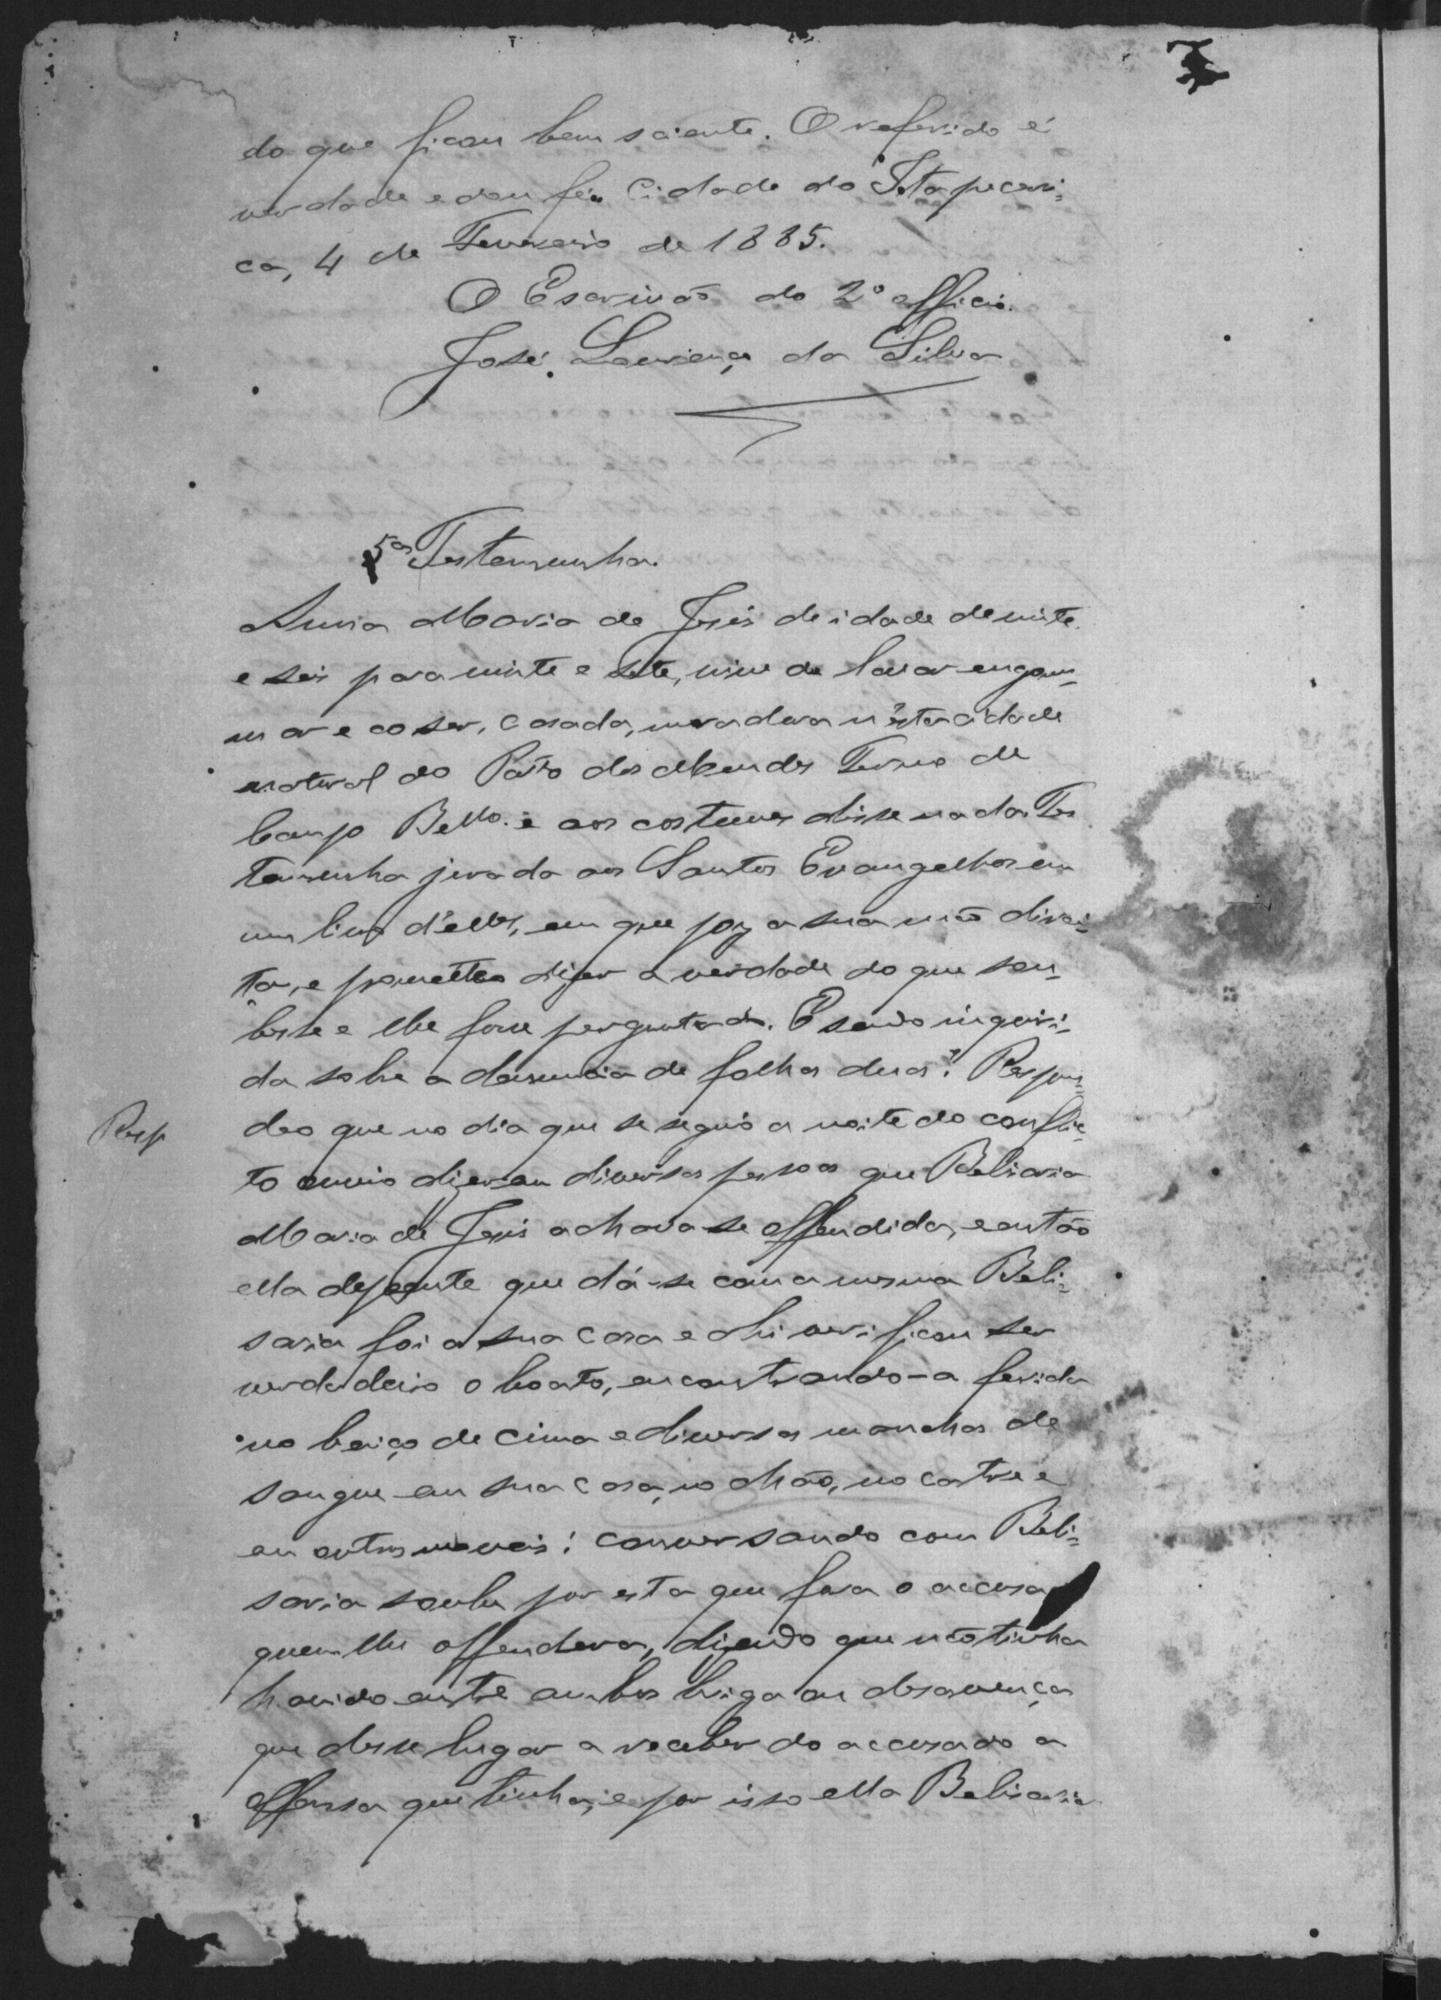 do que ficou bem sciente. O referido é
verdade e dou fé. Cidade do Itapeceri-
ca, 4 de Fevereiro de 1885.
O Escrivão do 2º officio.
José Lourenço da Silva
5ª Testemunha.
Anna Maria de Jesus de idade de vinte
e seis para vinte e sete, vive de lavar engom-
mar e coser, casada, moradora n'esta cidade
natural do Termo de
Campo Bello. e aos costumes disse nada. Tes
temunha jurada aos Santos Evangelhos em
um livro d'elles, em que poz a sua mão direi-
ta, e prometteo dizer a verdade do que sou-
besse e lhe fosse perguntado. E sendo inqueri-
da sobre a denuncia de folhas duas? Respon-
Resp
deo que no dia que se seguio a noite do confli-
to ouvio dizerem diversas pessoas que Belisaria
Maria de Jesus achava-se offendida, e então
ella depoente que dá-se com a mesma Beli-
saria foi a sua casa e ahi verificou ser
verdadeiro o boato, encontrando-a ferida
no beiço de cima e diversas manchas de
sangue em sua casa, no chão, no catre e
em outros moveis: conversando com Beli-
saria soube por esta que fora o accusa
quem lhe offendera, dizendo que não tinha
havido entre ambos briga ou desavença
que desse lugar a receber do accusado a
offensa que tinha, e por isso ella Belisaria